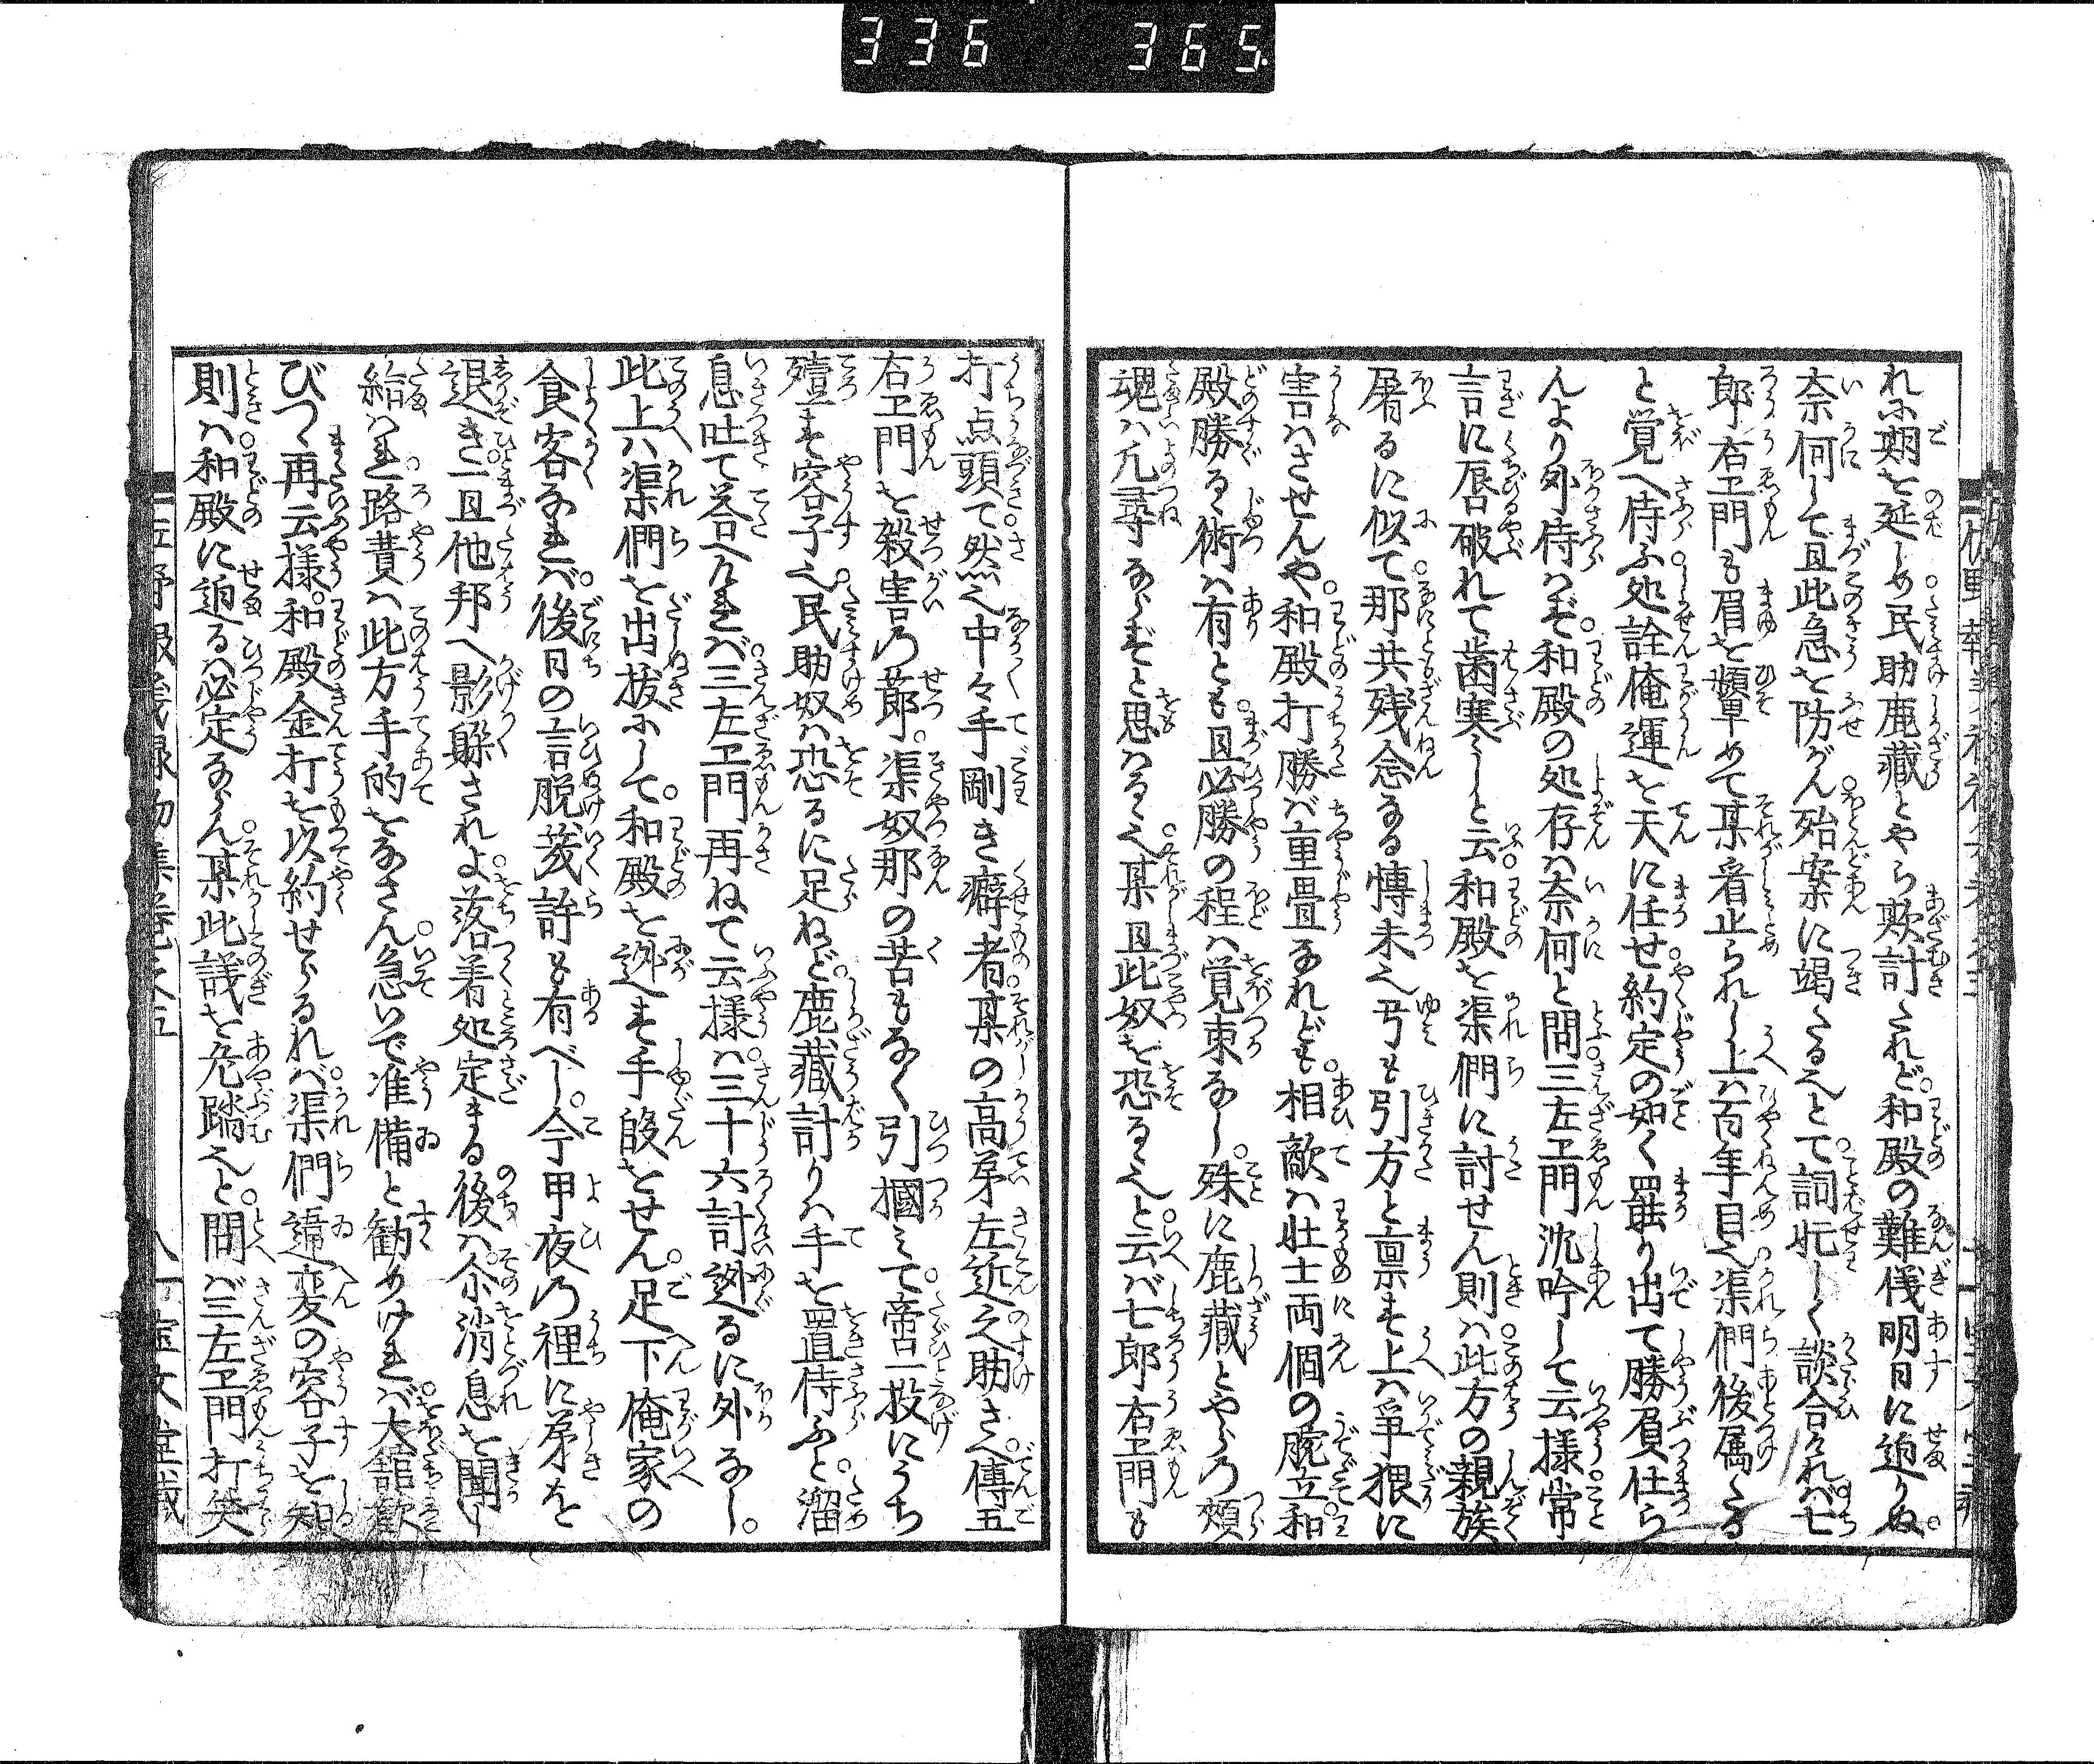 336 365
れに期を延しめ民助鹿蔵とやら欺計たれど。和殿の難儀明日に迫りぬ。
奈何して且此急を防がん。殆案に竭たる也とて。詞忙しく談合ければ。七
郎右ヱ門も眉を顰めて某音止られし上は百年目也渠們後属たる
と覚へ侍ふ。処詮俺運を天に任せ。約定の如く罷り出て勝負仕ら
んより外侍はず。和殿の処存は奈何と問。三左ヱ門沈吟して云様。常
言に唇破れて歯寒しと云。和殿を渠們に討せん則は。此方の親族
屠るに似て。那共残念なる慱未也弓も引方と稟す上は争猥に
害はさせんや。和殿打勝ば重畳なれども。相敵は壮士両個の腕立。和
殿勝る術は有とも。且必勝の程は覚束なし。殊に鹿蔵とやらの頬
魂は凡尋ならずと思はる也。某且此奴を恐る也と。云ば七郎右ヱ門も
打点頭て。然也中々手剛き癖者。某の高弟左近之助さへ。傳五
右ヱ門を殺害の節。渠奴那の苦もなく引掴みて。啻一投にうち
殪す容子也。民助奴は恐るに足ねど。鹿蔵計りは手を置侍ふと。溜
息吐て答へければ。三左ヱ門再ねて云様は。三十六計迯るに外なし。
此上は渠們を出抜にして。和殿を迯す手段をせん。足下俺家の
食客なれば。後日の言脱幾許も有べし。今甲夜の裡に弟を
退き。一且他邦へ影躲されよ。落着処定まる後は。尓消息を聞し
給はれ。路費は此方手的をなさん。急いで准備と勧めければ。大舘歓
びつゝ再云様。和殿金打を以約せらるれば。渠們違変の容子を知
則は。和殿に迫るは必定ならん。某此議を危踏也と。問ば三左ヱ門打笑